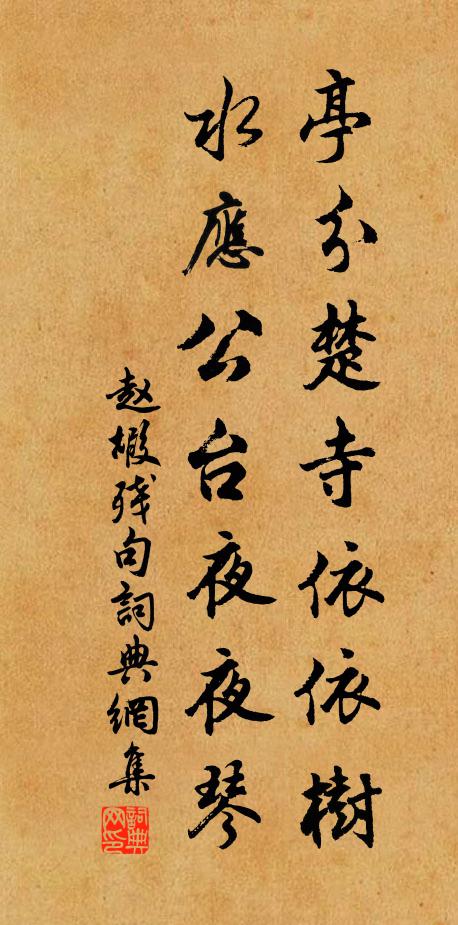 亭分楚寺依依樹
水應公台夜夜琴
赵嘏残句詞典網集
詞典网印